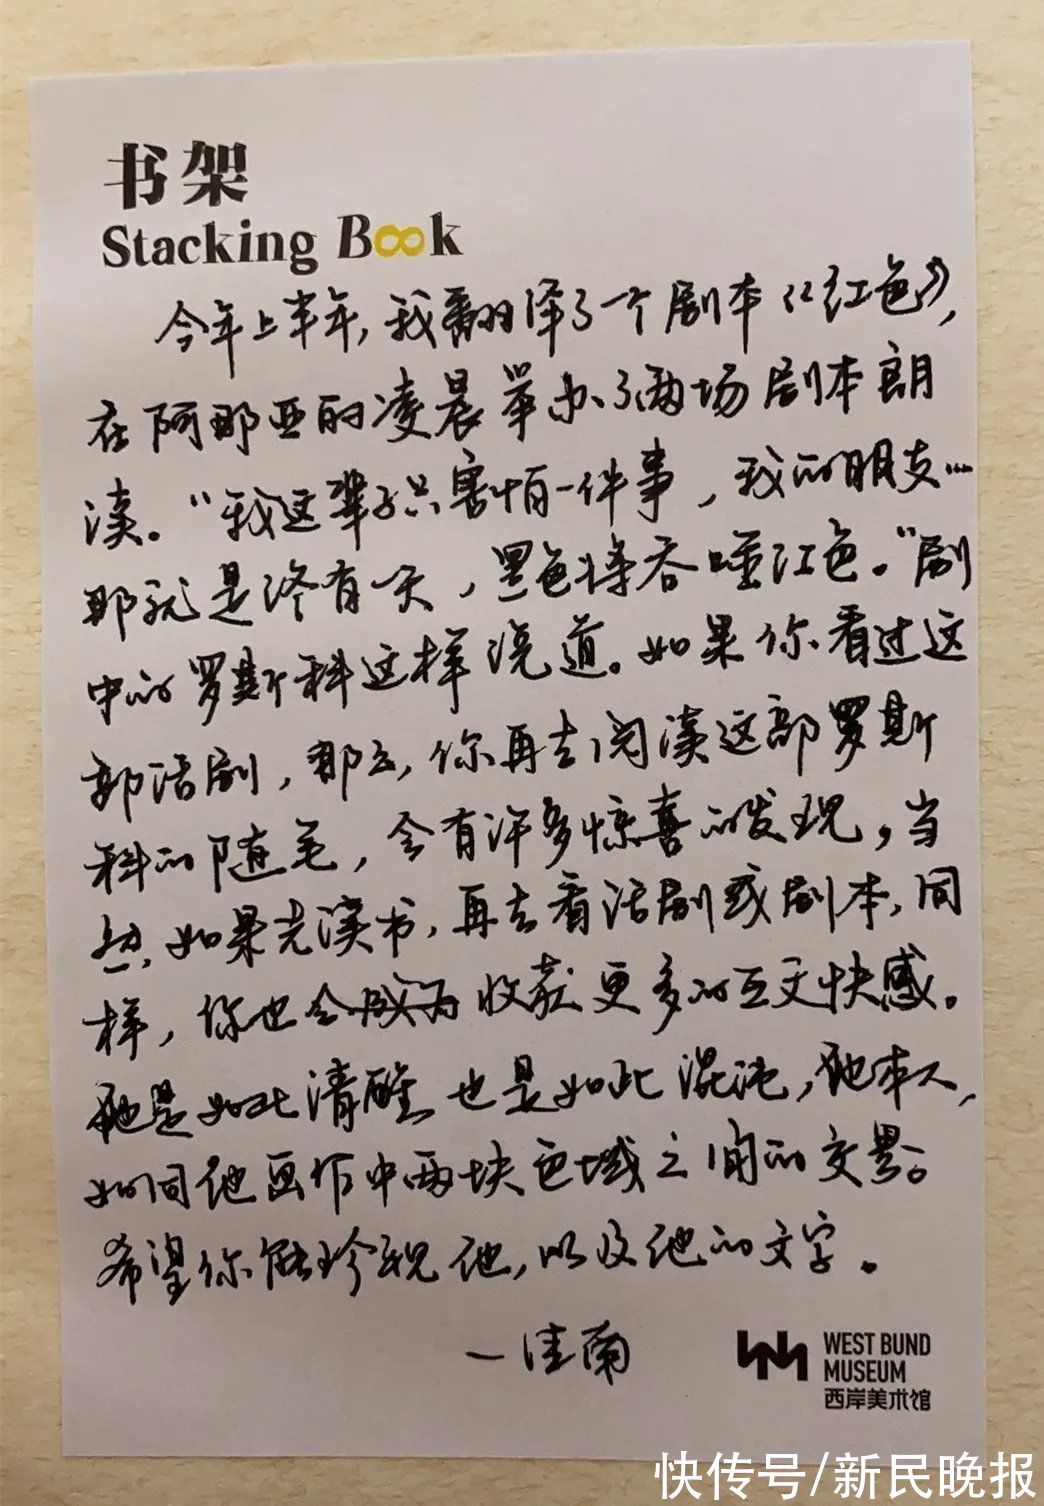 书架
Stacking Book
今年上半年,我翻译了一个剧本《红色》,
在阿那亚的凌晨举办了两场剧本朗
读。“我这辈子只害怕一件事,我的朋友…
那就是终有一天,黑色将吞噬红色。”剧
中的罗斯科这样说道。如果你看过这
部话剧,那么,你再去阅读这部罗斯
科的随笔,会有许多惊喜的发现,当
然,如果先读书,再去看话剧或剧本,同
样,你也会收获更多的互文快感。
他是如此清醒,也是如此混沌,他本人,
如同他画作中两块色域之间的交界。
希望你能珍视他,以及他的文字。
—佳南
WEST BUND
MUSEUM
西岸美术馆
快传号/新民晚报